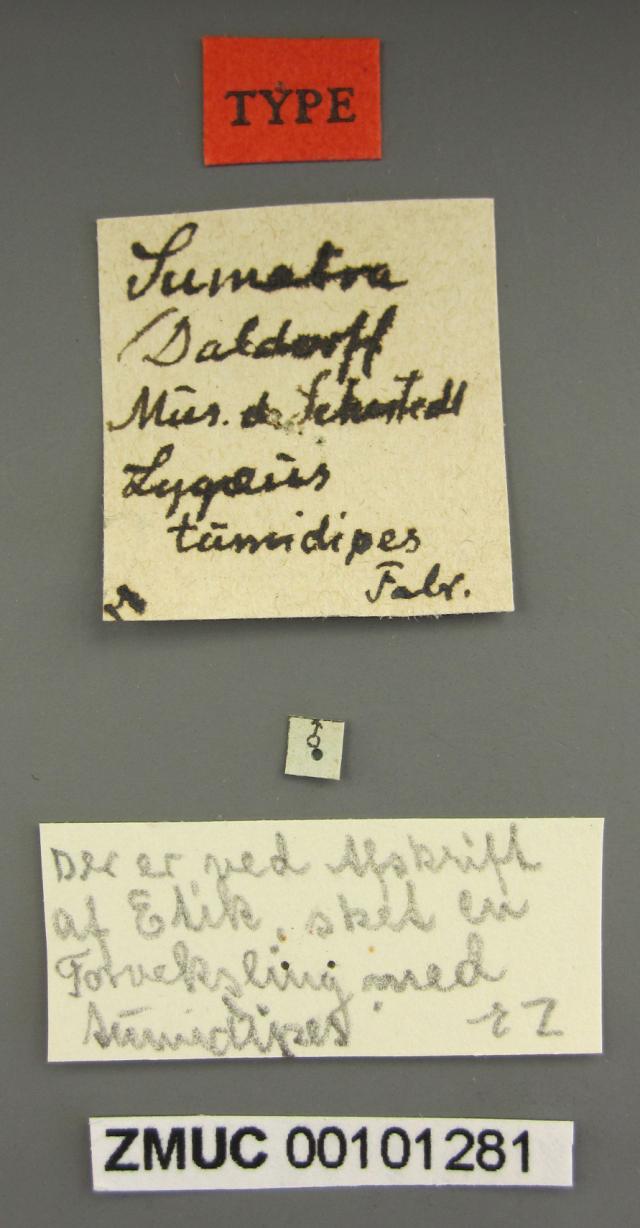 TYPE
Sumatra
Daldorff
Mus. de Sehestedt
Lygaeus
tumidipes
Fabr.
♂
Der er ved Afskrift
af Etik. sket en
Forveksling med
tumidipes
ZMUC 00101281